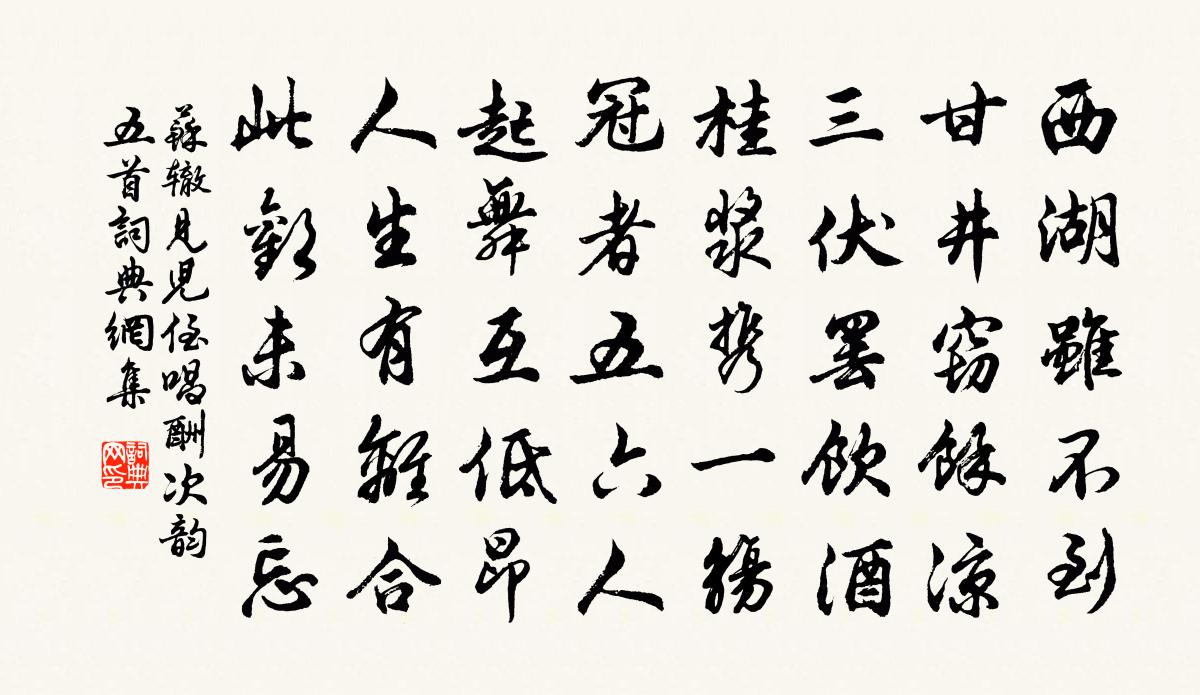 西湖雖不到
甘井窃餘凉
三伏罢飲酒
桂漿携一觴
冠者五六人
起舞互低昂
人生有離合
此歡未易忘
蘇辙見児侄唱酬次韵
五首詞典網集
詞典
网印